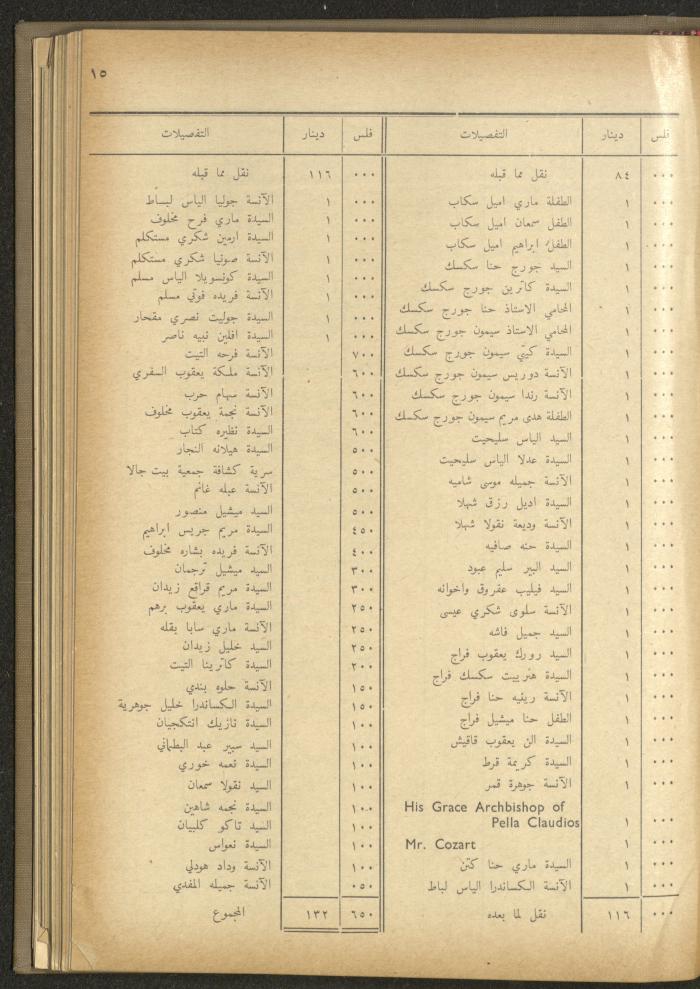 ١٥
فلس دينار التفصيلات
٠٠٠ ٨٤ نقل مما قبله
٠٠٠ ١ الطفلة ماري اميل سكاب
٠٠٠ ١ الطفل سمعان اميل سكاب
٠٠٠ ١ الطفل ابراهيم اميل سكاب
٠٠٠ ١ السيد جورج حنا سكسك
٠٠٠ ١ السيدة كاترين جورج سكسك
٠٠٠ ١ المحامي الاستاذ حنا جورج سكسك
٠٠٠ ١ المحامي الاستاذ سيمون جورج سكسك
٠٠٠ ١ السيدة كيتي سيمون جورج سكسك
٠٠٠ ١ الآنسة دوريس سيمون جورج سكسك
٠٠٠ ١ الآنسة رندا سيمون جورج سكسك
٠٠٠ ١ الطفلة هدى مريم سيمون جورج سكسك
٠٠٠ ١ السيد الياس سليحيت
٠٠٠ ١ السيدة عدلا الياس سليحيت
٠٠٠ ١ الآنسة جميله موسى شاميه
٠٠٠ ١ السيدة اديل رزق شهلا
٠٠٠ ١ الآنسة وديعة نقولا شهلا
٠٠٠ ١ السيدة حنه صافيه
٠٠٠ ١ السيد البير سليم عبود
٠٠٠ ١ السيد فيليب عفروق واخوانه
٠٠٠ ١ الآنسة سلوى شكري عيسى
٠٠٠ ١ السيد جميل فاشه
٠٠٠ ١ السيد رورك يعقوب فراج
٠٠٠ ١ السيدة هنرييت سكسك فراج
٠٠٠ ١ الآنسة رينيه حنا فراج
٠٠٠ ١ الطفل حنا ميشيل فراج
٠٠٠ ١ السيدة الن يعقوب قاقيش
٠٠٠ ١ السيدة كريمة قرط
٠٠٠ ١ الآنسة جوهرة قمر
His Grace Archbishop of
٠٠٠ ١ Pella Claudios
٠٠٠ ١ Mr. Cozart
٠٠٠ ١ السيدة ماري حنا كتن
٠٠٠ ١ الآنسة الكساندرا الياس لباط
٠٠٠ ١١٦ نقل لما بعده
فلس دينار التفصيلات
٠٠٠ ١١٦ نقل مما قبله
٠٠٠ ١ الآنسة جوليا الياس لبساط
٠٠٠ ١ السيدة ماري فرح مخلوف
٠٠٠ ١ السيدة ارمين شكري مستكلم
٠٠٠ ١ الآنسة صونيا شكري مستكلم
٠٠٠ ١ السيدة كونسويلا الياس مسلم
٠٠٠ ١ الآنسة فريده فوتي مسلم
٠٠٠ ١ السيدة جوليت نصري مقحار
٠٠٠ ١ السيدة افلين نبيه ناصر
٧٠٠ الآنسة فرحه التيت
٦٠٠ الآنسة ملكة يعقوب السفري
٦٠٠ الآنسة سهام حرب
٦٠٠ الآنسة نجمة يعقوب مخلوف
٦٠٠ السيدة نظيره كتاب
٥٠٠ السيدة هيلانه النجار
٥٠٠ سرية كشافة جمعية بيت جالا
٥٠٠ الآنسة عبله غانم
٥٠٠ السيد ميشيل منصور
٤٥٠ السيدة مريم جريس ابراهيم
٤٠٠ الآنسة فريده بشاره مخلوف
٣٠٠ السيد ميشيل ترجمان
٣٠٠ السيدة مريم قراقع زيدان
٢٥٠ السيدة ماري يعقوب برهم
٢٥٠ الآنسة ماري سابا بقله
٢٥٠ السيد خليل زيدان
٢٠٠ السيدة كاترينا التيت
١٥٠ الآنسة حلوه بندي
١٥٠ السيدة الكساندرا خليل جوهرية
١٠٠ السيدة نازيك انتكجيان
١٠٠ السيد سبير عبد البطناني
١٠٠ السيدة نعمه خوري
١٠٠ السيد نقولا سمعان
١٠٠ السيدة نجمه شاهين
١٠٠ السيد تاكو كلبيان
١٠٠ السيدة نعواس
١٠٠ الآنسة وداد هودلي
٠٥٠ الآنسة جميله المفدي
٦٥٠ ١٣٢ المجموع